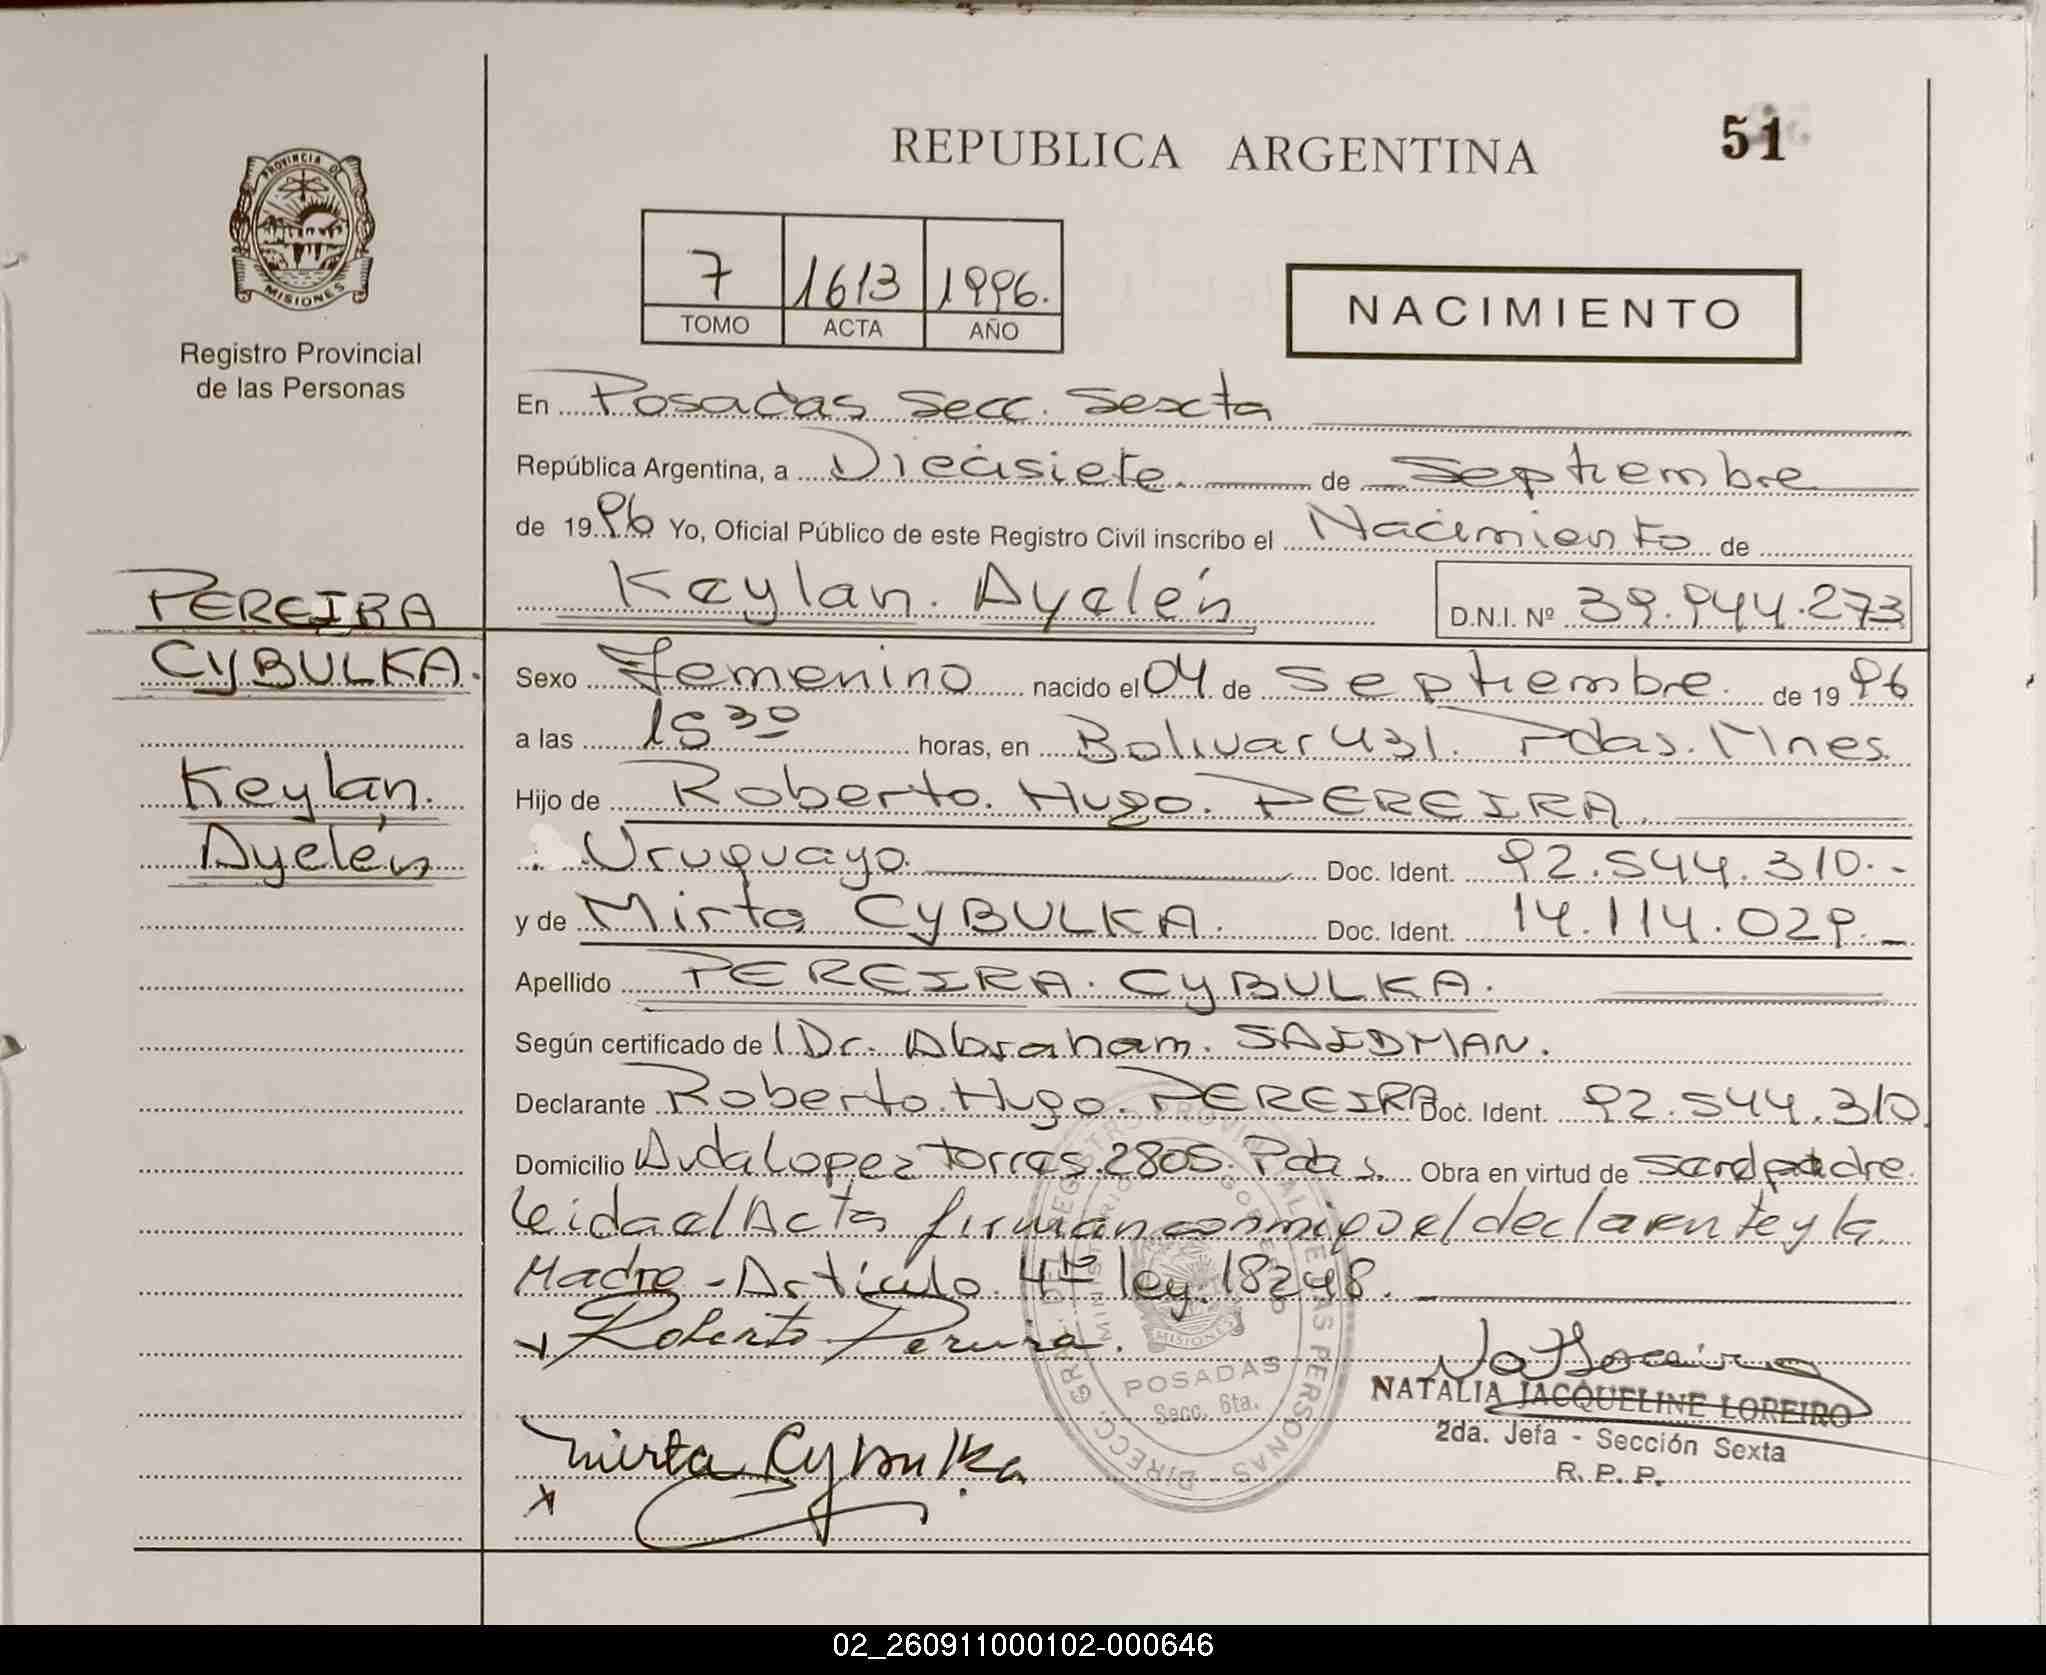 REPUBLICA ARGENTINA
51
PROVINCIA DE
MISIONES
Registro Provincial
de las Personas
7 1613 1996.
TOMO ACTA AÑO
NACIMIENTO
En Posadas Secc. Sexta
República Argentina, a Diecisiete de Septiembre
de 1996 Yo, Oficial Público de este Registro Civil inscribo el Nacimiento de
Keylan. Ayelén D.N.I. Nº 39.944.273
PEREIRA
CYBULKA.
Keylan.
Ayelén
Sexo Femenino nacido el 04 de Septiembre. de 1996
a las 15 30 horas, en Bolivar 431. Pdas. Mnes.
Hijo de Roberto. Hugo. PEREIRA.
Uruguayo. Doc. Ident. 92.544.310.-
y de Mirta CYBULKA. Doc. Ident. 14.114.029.-
Apellido PEREIRA. CYBULKA.
Según certificado de Dr. Abraham. SAIDMAN.
Declarante Roberto. Hugo. PEREIRA Doc. Ident. 92.544.310.
Domicilio Avda Lopez Torres. 2805. Pdas. Obra en virtud de ser padre.
Leida el Acta firman conmigo el declarante y la
Madre - Articulo. 4to ley. 18248.
Roberto Pereira.
Mirta Cybulka
DIRECC. GRAL. DEL REGISTRO PROVINCIAL DE LAS PERSONAS
MINISTERIO DE GOBIERNO
MISIONES
POSADAS
Secc. 6ta.
NATALIA JACQUELINE LOREIRO
2da. Jefa - Sección Sexta
R. P. P.
02_260911000102-000646